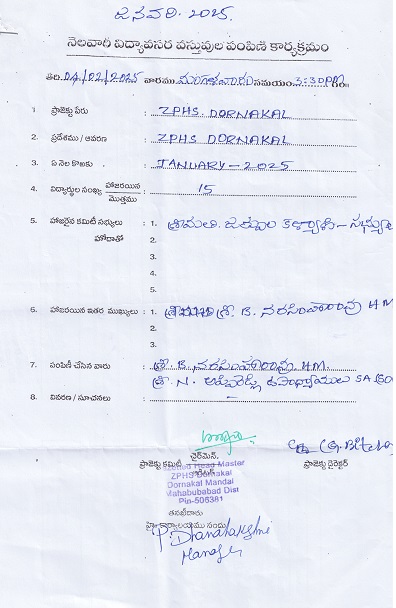 జనవరి. 2025.
నెలవారి విద్యావసర వస్తువుల పంపిణి కార్యక్రమం
తేది. 04/02/2025 వారము మంగళవారం సమయం. 3:30PM గం॥
1. ప్రాజెక్టు పేరు : ZPHS. DORNAKAL
2. ప్రదేశము / ఆవరణ : ZPHS DORNAKAL
3. ఏ నెల కొఱకు : JANUARY - 2025
4. విద్యార్థుల సంఖ్య హాజరయిన : 15
మొత్తము
5. హాజరైన కమిటీ సభ్యులు : 1. శ్రీమతి.
హోదాతో 2.
3.
4.
5.
6. హాజరయిన ఇతర ముఖ్యులు : 1. శ్రీ. B. నరసింహారావు HM
2.
3.
7. పంపిణీ చేసిన వారు : శ్రీ. B. నరసింహారావు. HM.
శ్రీ. N. ఉపాధ్యాయులు SA
8. వివరణ / సూచనలు : -
ఛైర్మెన్,
ప్రాజెక్టు కమిటీ ప్రాజెక్టు డైరెక్టర్
Head Master
ZPHS Dornakal
Dornakal Mandal
Mahabubabad Dist
Pin-506381
తనఖీదారు
కార్యాలయము నందు
P. Dhanalakshmi
Manager